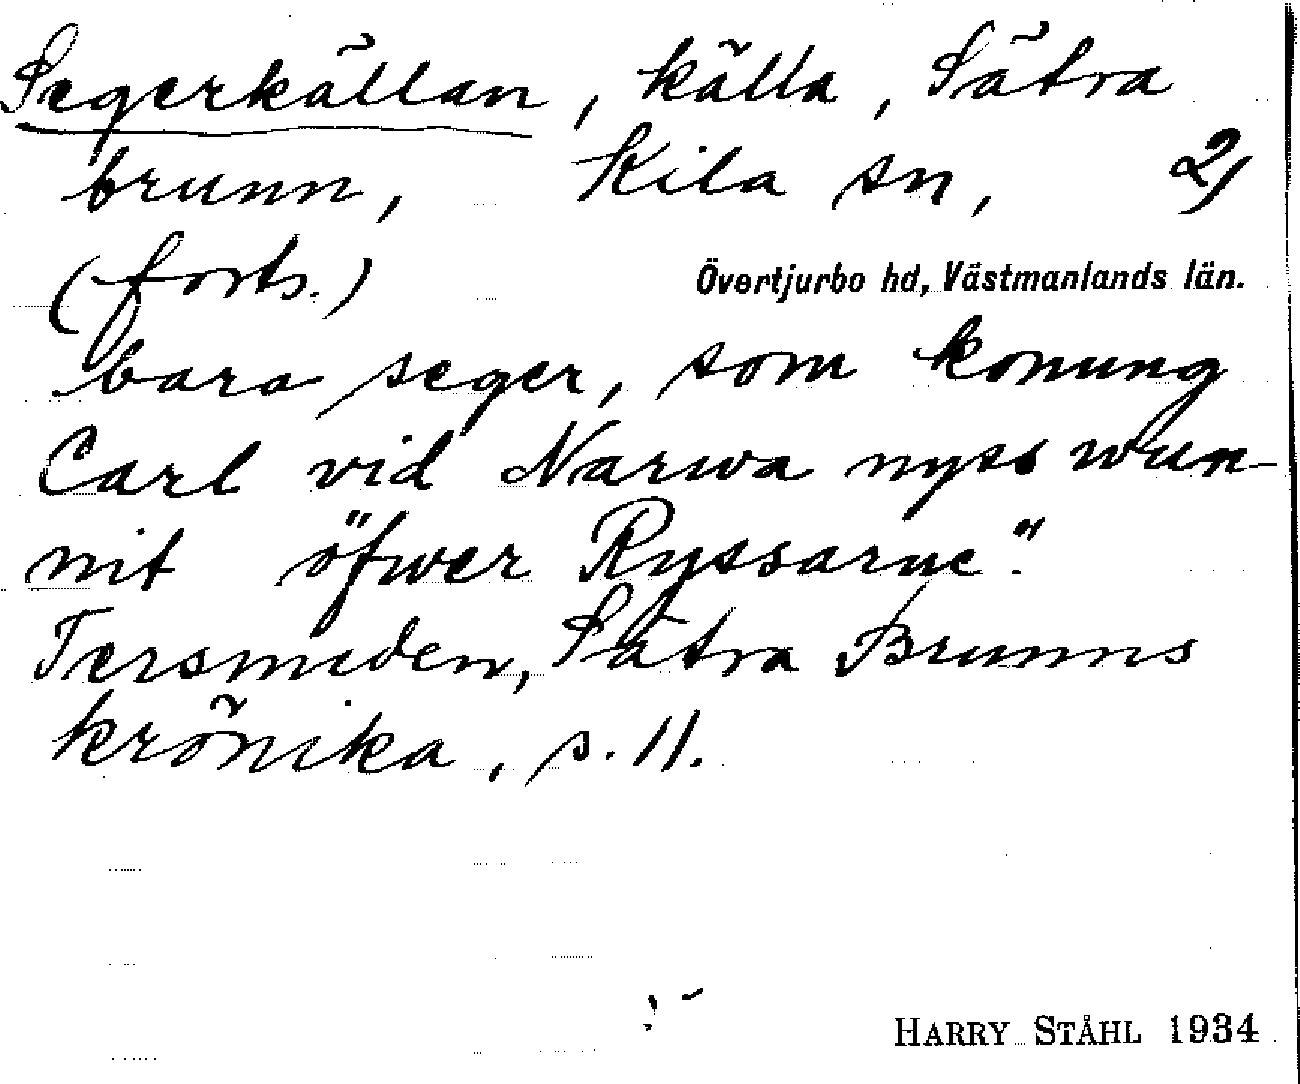 Segerkällan, källa, Sätra
brunn, Kila sn, 2)
(forts.) Övertjurbo hd, Västmanlands län.
bara seger, som konung
Carl vid Narwa nyss wun-
nit öfwer Ryssarne".
Tersmeden, Sätra Brunns
krönika, s. 11.
HARRY STÅHL 1934